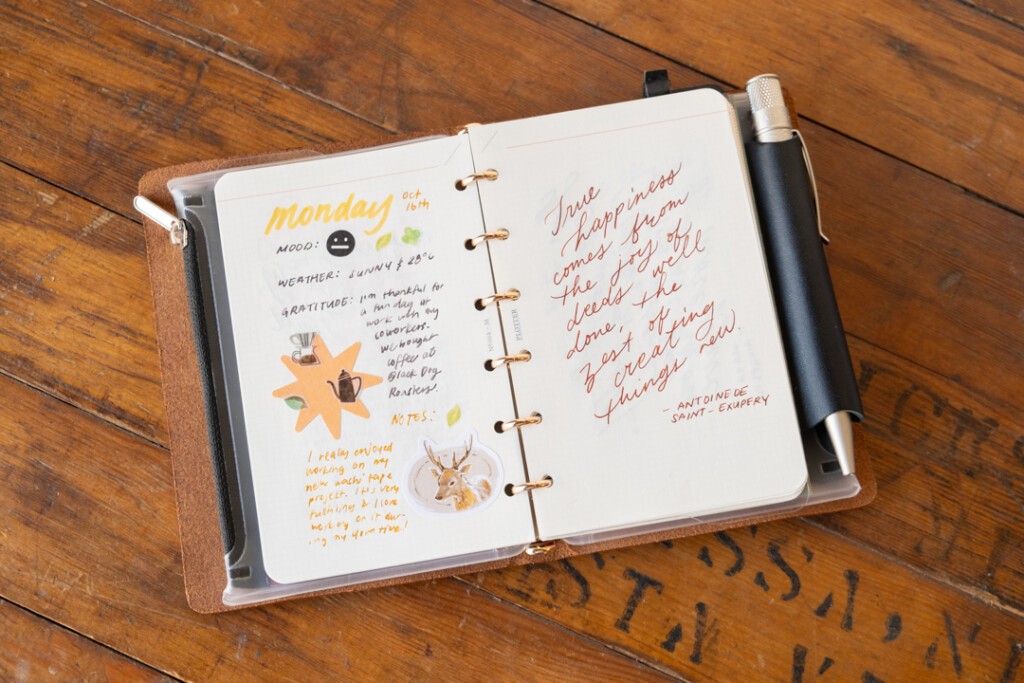 monday
Oct.
16th
MOOD:
WEATHER: SUNNY & 28°C
GRATITUDE: I'm thankful for
a fun day at
work with my
coworkers.
We bought
coffee at
Black Dog
Roasters.
NOTES:
I really enjoyed
working on my
new washi tape
project. It's very
fulfilling & I love
working on it dur-
ing my down time!
PLOTTER
True
happiness
comes from
the joy of
deeds well
done, the
zest of
creating
things new.
- ANTOINE DE
SAINT-EXUPERY